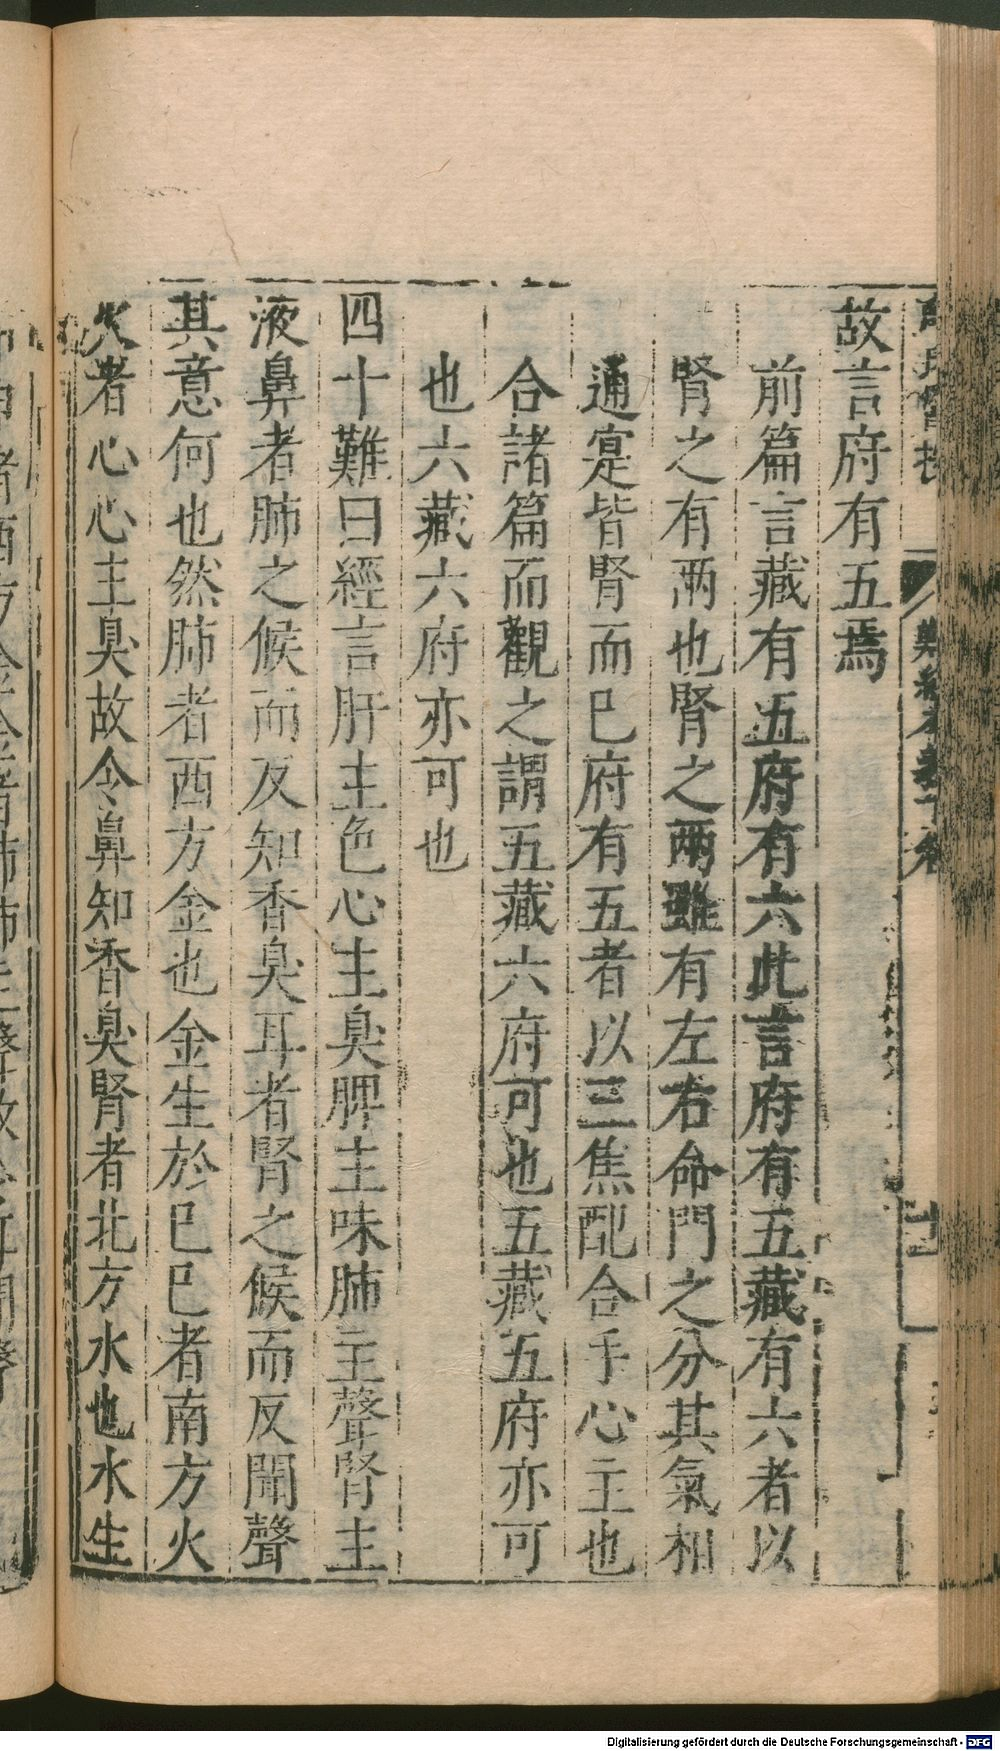 故言府有五焉
前篇言藏有五府有六此言府有五藏有六者以
腎之有兩也腎之兩雖有左右命門之分其氣相
通寔皆腎而已府有五者以三焦配合手心主也
合諸篇而觀之謂五藏六府可也五藏五府亦可
也六藏六府亦可也
四十難曰經言肝主色心主臭脾主味肺主聲腎主
液鼻者肺之候而反知香臭耳者腎之候而反聞聲
其意何也然肺者西方金也金生於巳巳者南方火
火者心心主臭故令鼻知香臭腎者北方水也水生
Digitalisierung gefördert durch die Deutsche Forschungsgemeinschaft - DFG